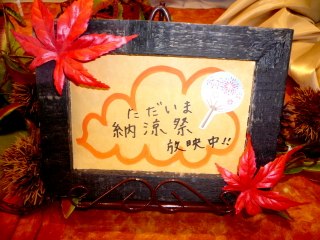 ただいま
納涼祭
放映中!!